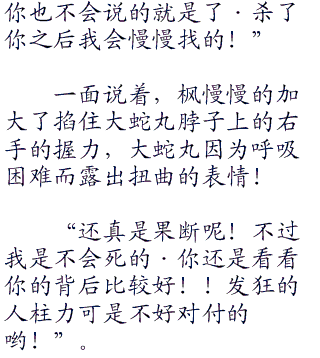 你也不会说的就是了·杀了
你之后我会慢慢找的！”
一面说着，枫慢慢的加
大了掐住大蛇丸脖子上的右
手的握力，大蛇丸因为呼吸
困难而露出扭曲的表情！
“还真是果断呢！不过
我是不会死的·你还是看看
你的背后比较好！！发狂的
人柱力可是不好对付的
哟！”。